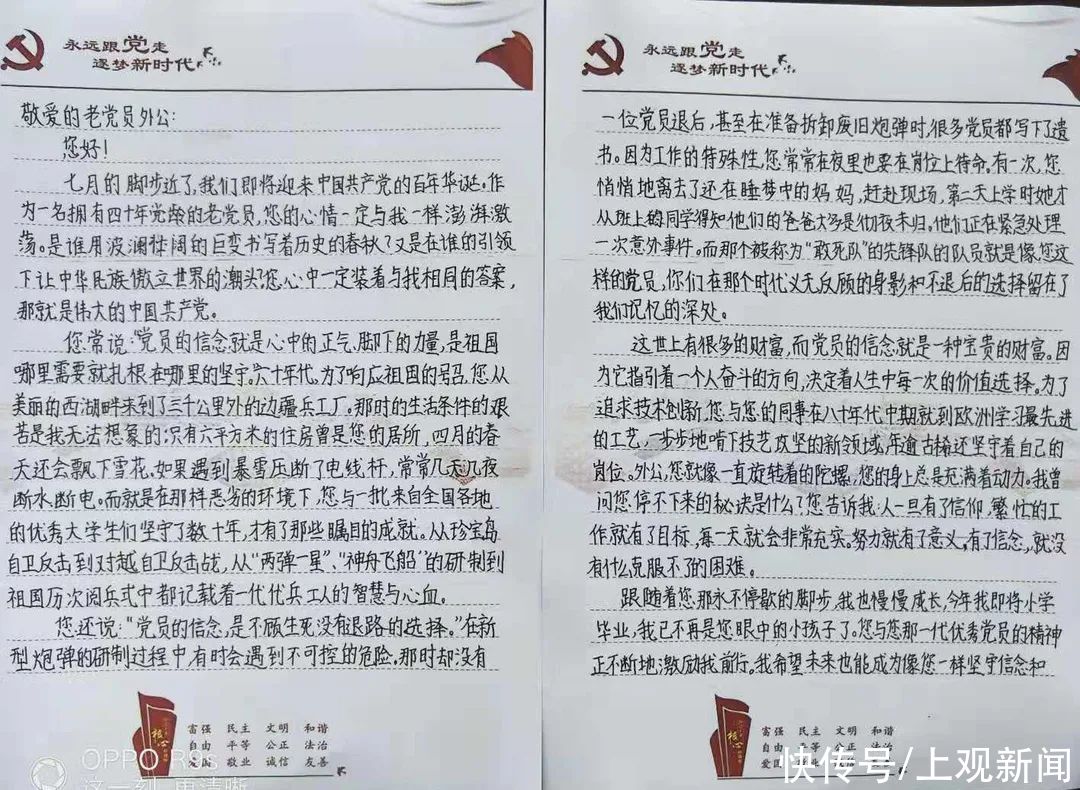 永远跟党走
逐梦新时代
敬爱的老党员外公:
您好!
七月的脚步近了,我们即将迎来中国共产党的百年华诞。作
为一名拥有四十年党龄的老党员,您的心情一定与我一样澎湃激
荡。是谁用波澜壮阔的巨变书写着历史的春秋?又是在谁的引领
下让中华民族傲立世界的潮头?您心中一定装着与我相同的答案,
那就是伟大的中国共产党。
您常说:“党员的信念就是心中的正气、脚下的力量,是祖国
哪里需要就扎根在哪里的坚守。六十年代,为了响应祖国的号召,您从
美丽的西湖畔来到了三千公里外的边疆兵工厂。那时的生活条件的艰
苦是我无法想象的:只有六平方米的住房曾是您的居所,四月的春
天还会飘下雪花。如果遇到暴雪压断了电线杆,常常几天几夜
断水断电。而就是在那样恶劣的环境下,您与一批来自全国各地
的优秀大学生们坚守了数十年,才有了那些瞩目的成就。从珍宝岛
自卫反击到对越自卫反击战,从“两弹一星”、“神舟飞船”的研制到
祖国历次阅兵式中都记载着一代代兵工人的智慧与心血。
您还说:“党员的信念,是不顾生死没有退路的选择。”在新
型炮弹的研制过程中,有时会遇到不可控的危险。那时却没有
富强 民主 文明 和谐
自由 平等 公正 法治
敬业 诚信 友善
OPPO R9s
永远跟党走
逐梦新时代
一位党员退后,甚至在准备拆卸废旧炮弹时,很多党员都写下了遗
书。因为工作的特殊性,您常常在夜里也要在岗位上待命。有一次,您
悄悄地离去了还在睡梦中的妈妈,赶赴现场,第二天上学时她才
从班上的同学得知他们的爸爸大多是彻夜未归。他们正在紧急处理
一次意外事件。而那个被称为“敢死队”的先锋队的队员就是像您这
样的党员,你们在那个时代义无反顾的身影和不退后的选择留在了
我们记忆的深处。
这世上有很多的财富,而党员的信念就是一种宝贵的财富。因
为它指引着一个人奋斗的方向,决定着人生中每一次的价值选择。为了
追求技术创新,您与您的同事在八十年代中期就到欧洲学习最先进
的工艺,一步步地啃下技艺攻坚的新领域,年逾古稀还坚守着自己的
岗位。外公,您就像一直旋转着的陀螺,您的身上总是充满着动力。我曾
问您停不下来的秘诀是什么?您告诉我:人一旦有了信仰,繁忙的工
作就有了目标,每一天就会非常充实。努力就有了意义,有了信念,就没
有什么克服不了的困难。
跟随着您那永不停歇的脚步,我也慢慢成长,今年我即将小学
毕业,我已不再是您眼中的小孩子了。您与您那一代优秀党员的精神
正不断地激励我前行。我希望未来也能成为像您一样坚守信念和
富强 民主 文明 和谐
自由 平等 公正 法治
快传号/上观新闻